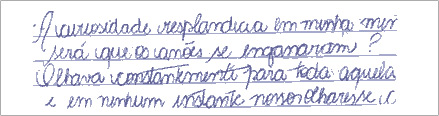 A curiosidade resplandicia em minha men
será que os anões se enganaram?
Olhava constantemente para toda aquela
e em nenhum instante nosso olhar se c